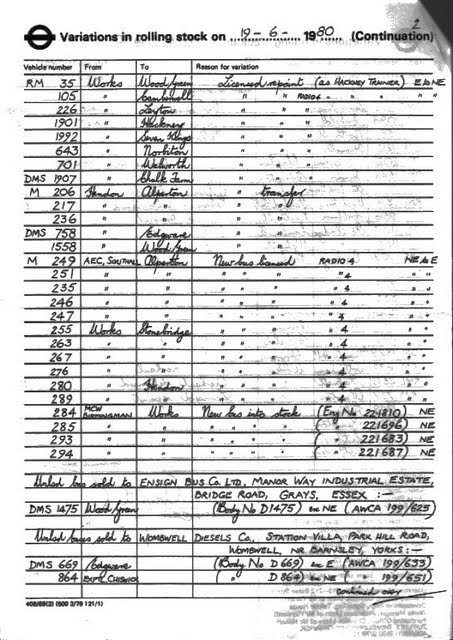 2
Variations in rolling stock on 19-6- 1980 (Continuation)
Vehicle number From To Reason for variation
RM 35 Works Wood Green Licensed repaint (as Hackney Trainer) E to NE
105 " Camberwell " " RADIO 4 " " " "
226 " Leyton " "
1901 " Hackney " "
1992 " Seven Kings " "
643 " Norbiton " "
701 " Walworth " "
DMS 1907 " Chalk Farm " "
M 206 Hendon Alperton " transfer
217 " " " "
236 " " " "
DMS 758 " Edgware " "
1558 " Wood Green " "
M 249 AEC, SOUTHALL Alperton New bus licensed RADIO 4 NE to E
251 " " " " " " 4 " "
235 " " " " " " 4 " "
246 " " " " " " 4 " "
247 " " " " " " 4 " "
255 Works Stonebridge " " " " 4 " "
263 " " " " " " 4 " "
267 " " " " " " 4 " "
276 " " " " " " 4 " "
280 " Hendon " " " " 4 " "
289 " " " " " " 4 " "
284 MCW BIRMINGHAM Works New bus into stock (Eng No 221810) NE
285 " " " " " " ( " 221696) NE
293 " " " " " " ( " 221683) NE
294 " " " " " " ( " 221687) NE
Unlicd bus sold to ENSIGN BUS CO. LTD, MANOR WAY INDUSTRIAL ESTATE,
BRIDGE ROAD, GRAYS, ESSEX :-
DMS 1475 Wood Green (Body No D1475) ex NE (AWCA 199/625)
Unlicd buses sold to WOMBWELL DIESELS CO., STATION VILLA, PARK HILL ROAD,
WOMBWELL, NR BARNSLEY, YORKS :-
DMS 669 Edgware (Body No D 669) ex E (AWCA 199/633)
864 EXPTL CHISWICK ( " D 864) ex NE ( " 199/651)
continued over
408/69(2) (500 3/79 121/1)